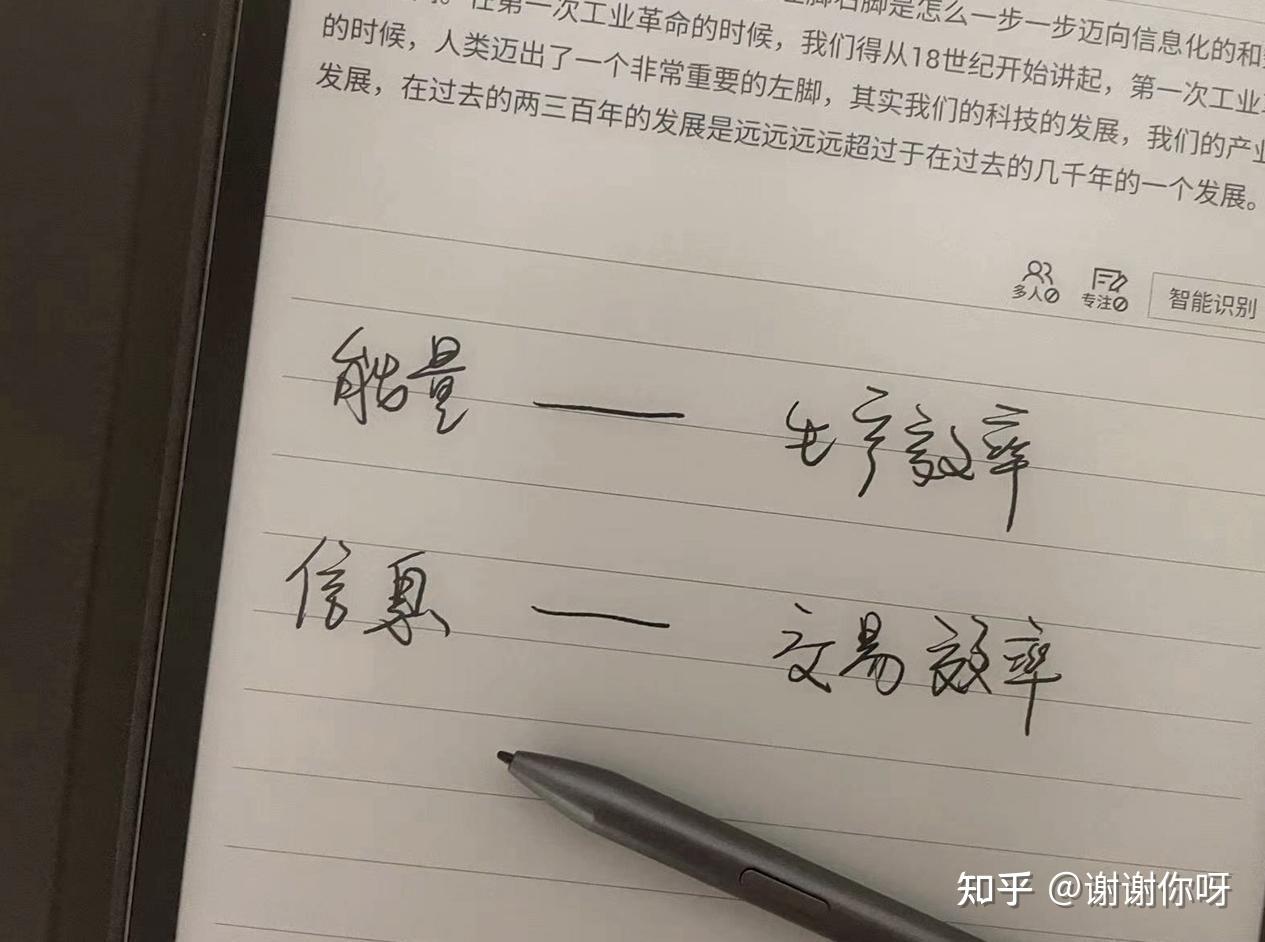 左脚右脚是怎么一步一步迈向信息化的和
在第一次工业革命的时候，我们得从18世纪开始讲起，第一次工业
的时候，人类迈出了一个非常重要的左脚，其实我们的科技的发展，我们的产业
发展，在过去的两三百年的发展是远远远远超过于在过去的几千年的一个发展。
多人 专注 智能识别
能量 — 生产效率
信息 — 交易效率
知乎 @谢谢你呀